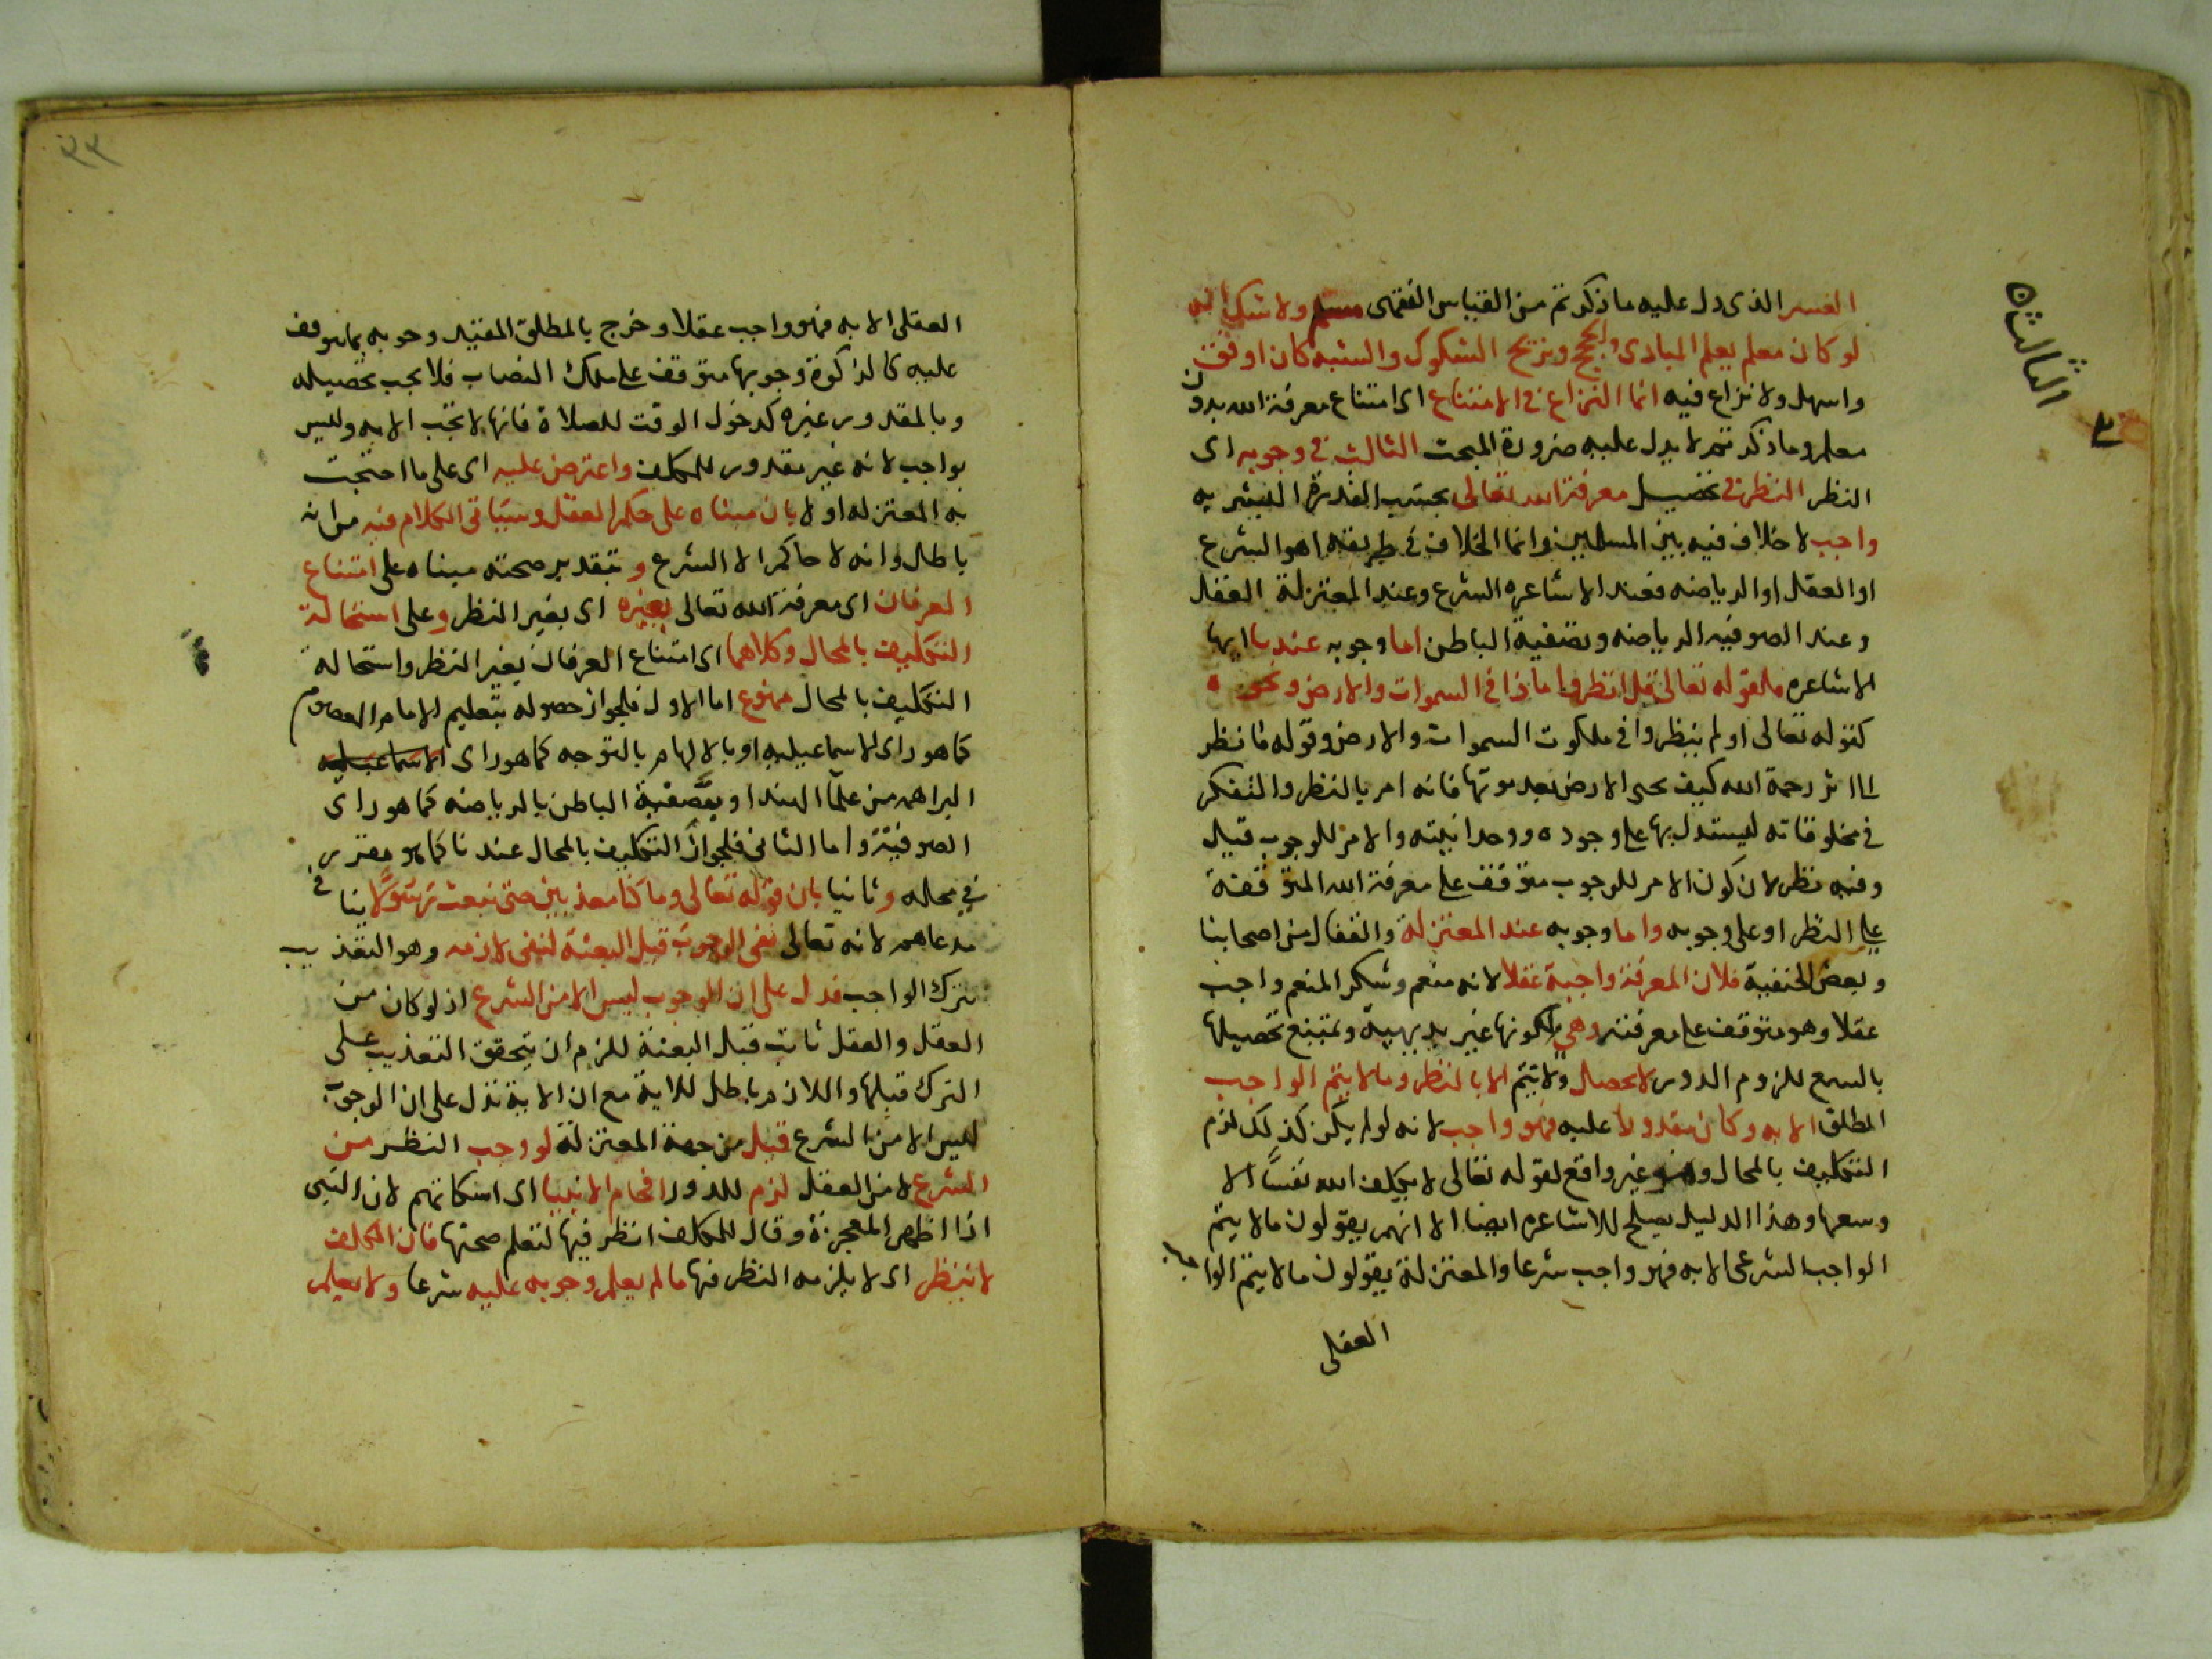 العسر الذى دل عليه ما ذكرتم من القياس الفقهى مسلم ولا شك انه
لو كان معلم يعلم المبادى والحجج ويزيح الشكوك والشبه كان اوفق
واسهل ولا نزاع فيه انما النزاع فى الامتناع اى امتناع معرفة الله بدون
معلم وما ذكرتم لا يدل عليه ضرورة المبحث الثالث فى وجوبه اى
النظر النظر فى تحصيل معرفة الله تعالى بحسب القدرة البشريه
واجب لا خلاف فيه بين المسلمين وانما الخلاف فى طريقه اهو الشرع
او العقل او الرياضه فعند الاشاعره الشرع وعند المعتزلة العقل
وعند الصوفيه الرياضه وتصفية الباطن اما وجوبه عندنا ايها
الاشاعره فلقوله تعالى قل انظروا ماذا فى السموات والارض ونحوه
كقوله تعالى اولم ينظروا فى ملكوت السموات والارض وقوله فانظر
الى اثر رحمة الله كيف يحى الارض بعد موتها فانه امر بالنظر والتفكر
فى مخلوقاته ليستدل بها على وجوده ووحدانيته والامر للوجوب قيل
وفيه نظر لان كون الامر للوجوب متوقف على معرفة الله المتوقفة
على النظر او على وجوبه واما وجوبه عند المعتزلة والقفال من اصحابنا
وبعض الحنفية فلان المعرفة واجبة عقلا لانه منعم وشكر المنعم واجب
عقلا وهو متوقف على معرفته وهى لكونها غير بديهية ويمتنع تحصيلها
بالسمع للزوم الدور لا تحصل ولا تتم الا بالنظر وما لا يتم الواجب
المطلق الا به وكان مقدورا عليه فهو واجب لانه لو لم يكن كذلك لزم
التكليف بالمحال وهو غير واقع لقوله تعالى لا يكلف الله نفسا الا
وسعها وهذا الدليل يصلح للاشاعره ايضا الا انهم يقولون ما لا يتم
الواجب الشرعى الا به فهو واجب شرعا والمعتزلة يقولون ما لا يتم الواجب
العقلى
الثالث
٣
٢٣
العقلى الا به فهو واجب عقلا وخرج بالمطلق المقيد وجوبه بما يتوقف
عليه كالزكوة وجوبها متوقف على ملك النصاب فلا يجب تحصيله
وبالمقدور غيره كدخول الوقت للصلاة فانها لا تجب الا به وليس
بواجب لانه غير مقدور للمكلف واعترض عليه اى على ما احتجت
به المعتزله اولا بان مبناه على حكم العقل وسياتى الكلام فيه من انه
باطل وانه لا حاكم الا الشرع وبتقدير صحته مبناه على امتناع
العرفان اى معرفة الله تعالى بغيره اى بغير النظر وعلى استحالة
التكليف بالمحال وكلاهما اى امتناع العرفان بغير النظر واستحالة
التكليف بالمحال ممنوع اما الاول فلجواز حصوله بتعليم الامام المعصوم
كما هو راى الاسماعيليه او بالالهام بالتوجه كما هو راى الاسماعيليه
البراهمه من علما الهند او بتصفية الباطن بالرياضه كما هو راى
الصوفية واما الثانى فلجواز التكليف بالمحال عندنا كما هو مقرر
فى محاله وثانيا بان قوله تعالى وما كنا معذبين حتى نبعث رسولا ينافى
مدعاهم لانه تعالى نفى الوجوب قبل البعثة لنفى لازمه وهو التعذيب
بترك الواجب فدل على ان الوجوب ليس الا من الشرع اذ لو كان من
العقل والعقل ثابت قبل البعثة للزم ان يتحقق التعذيب على
الترك قبلها واللازم باطل للاية مع ان الاية تدل على ان الوجوب
ليس الا من الشرع قيل من جهة المعتزلة لو وجب النظر من
الشرع لا من العقل لزم للدور افحام الانبيا اى اسكاتهم لان النبى
اذا اظهر المعجزة وقال للمكلف انظر فيها لتعلم صحتها فان المكلف
لا ينظر اى لا يلزمه النظر فيها ما لم يعلم وجوبه عليه شرعا ولا يعلم